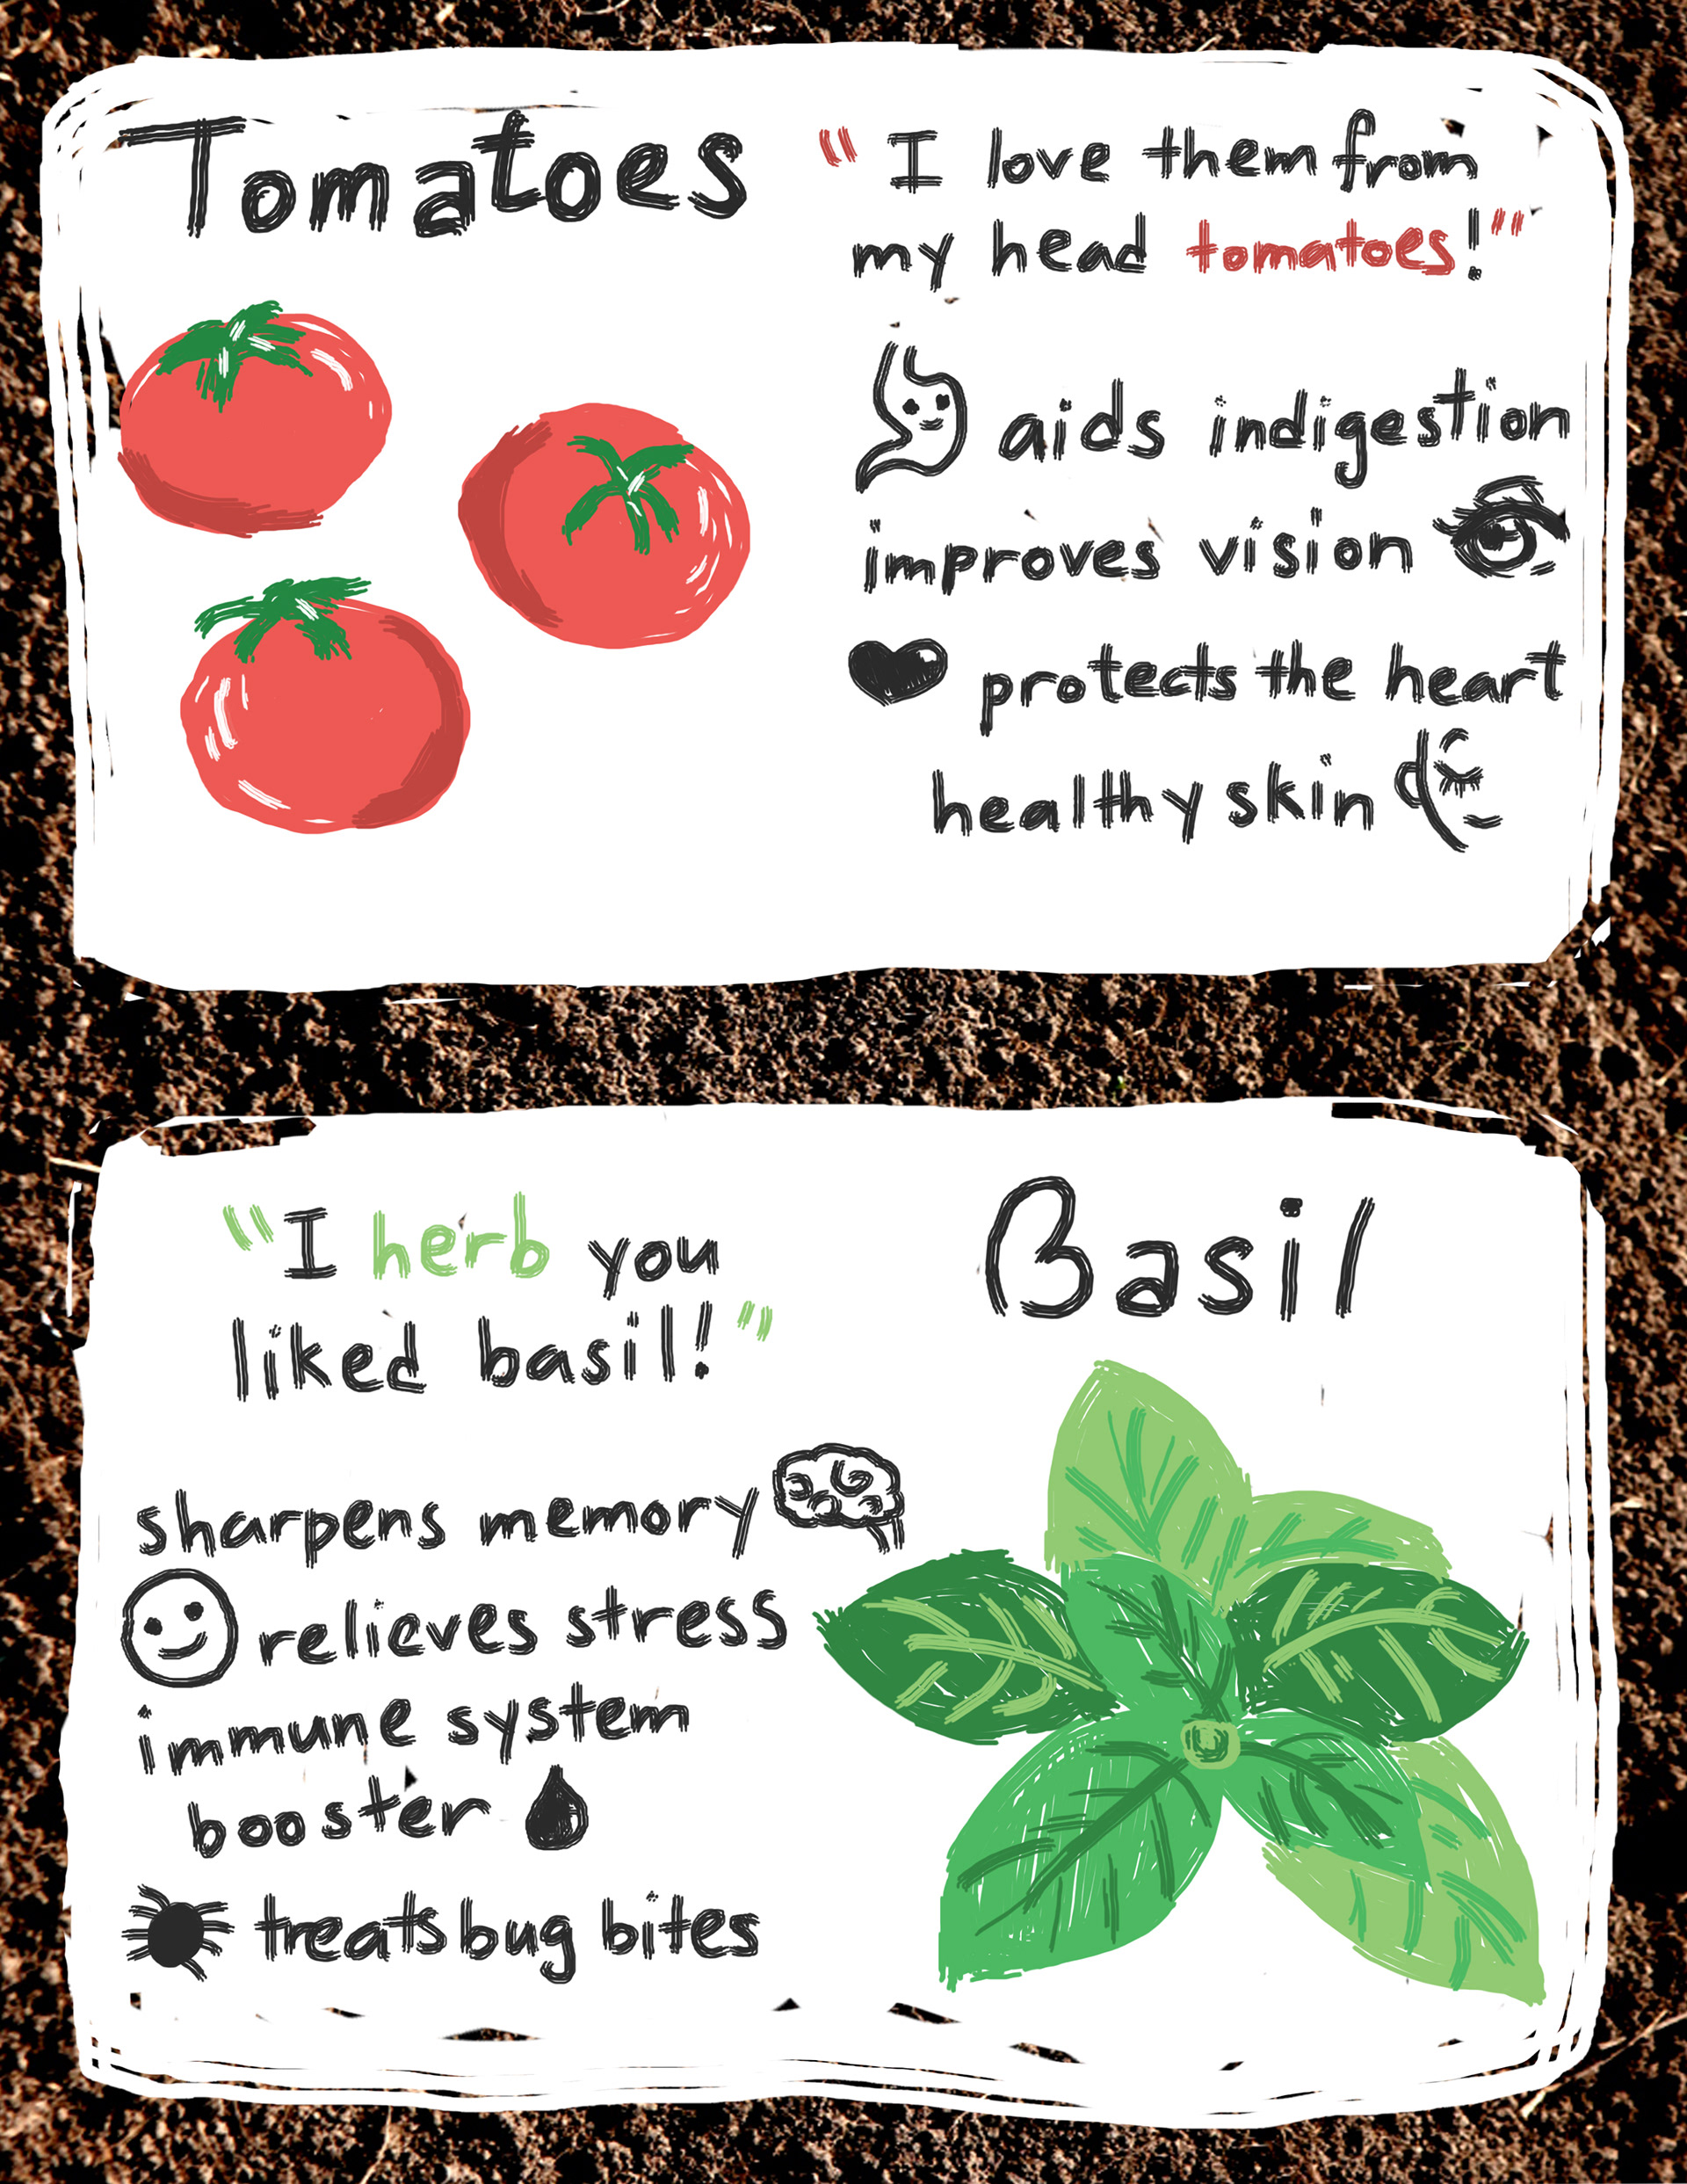 Tomatoes
"I love them from
my head tomatoes!"
aids indigestion
improves vision
protects the heart
healthy skin
"I herb you
liked basil!"
Basil
sharpens memory
relieves stress
immune system
booster
treats bug bites